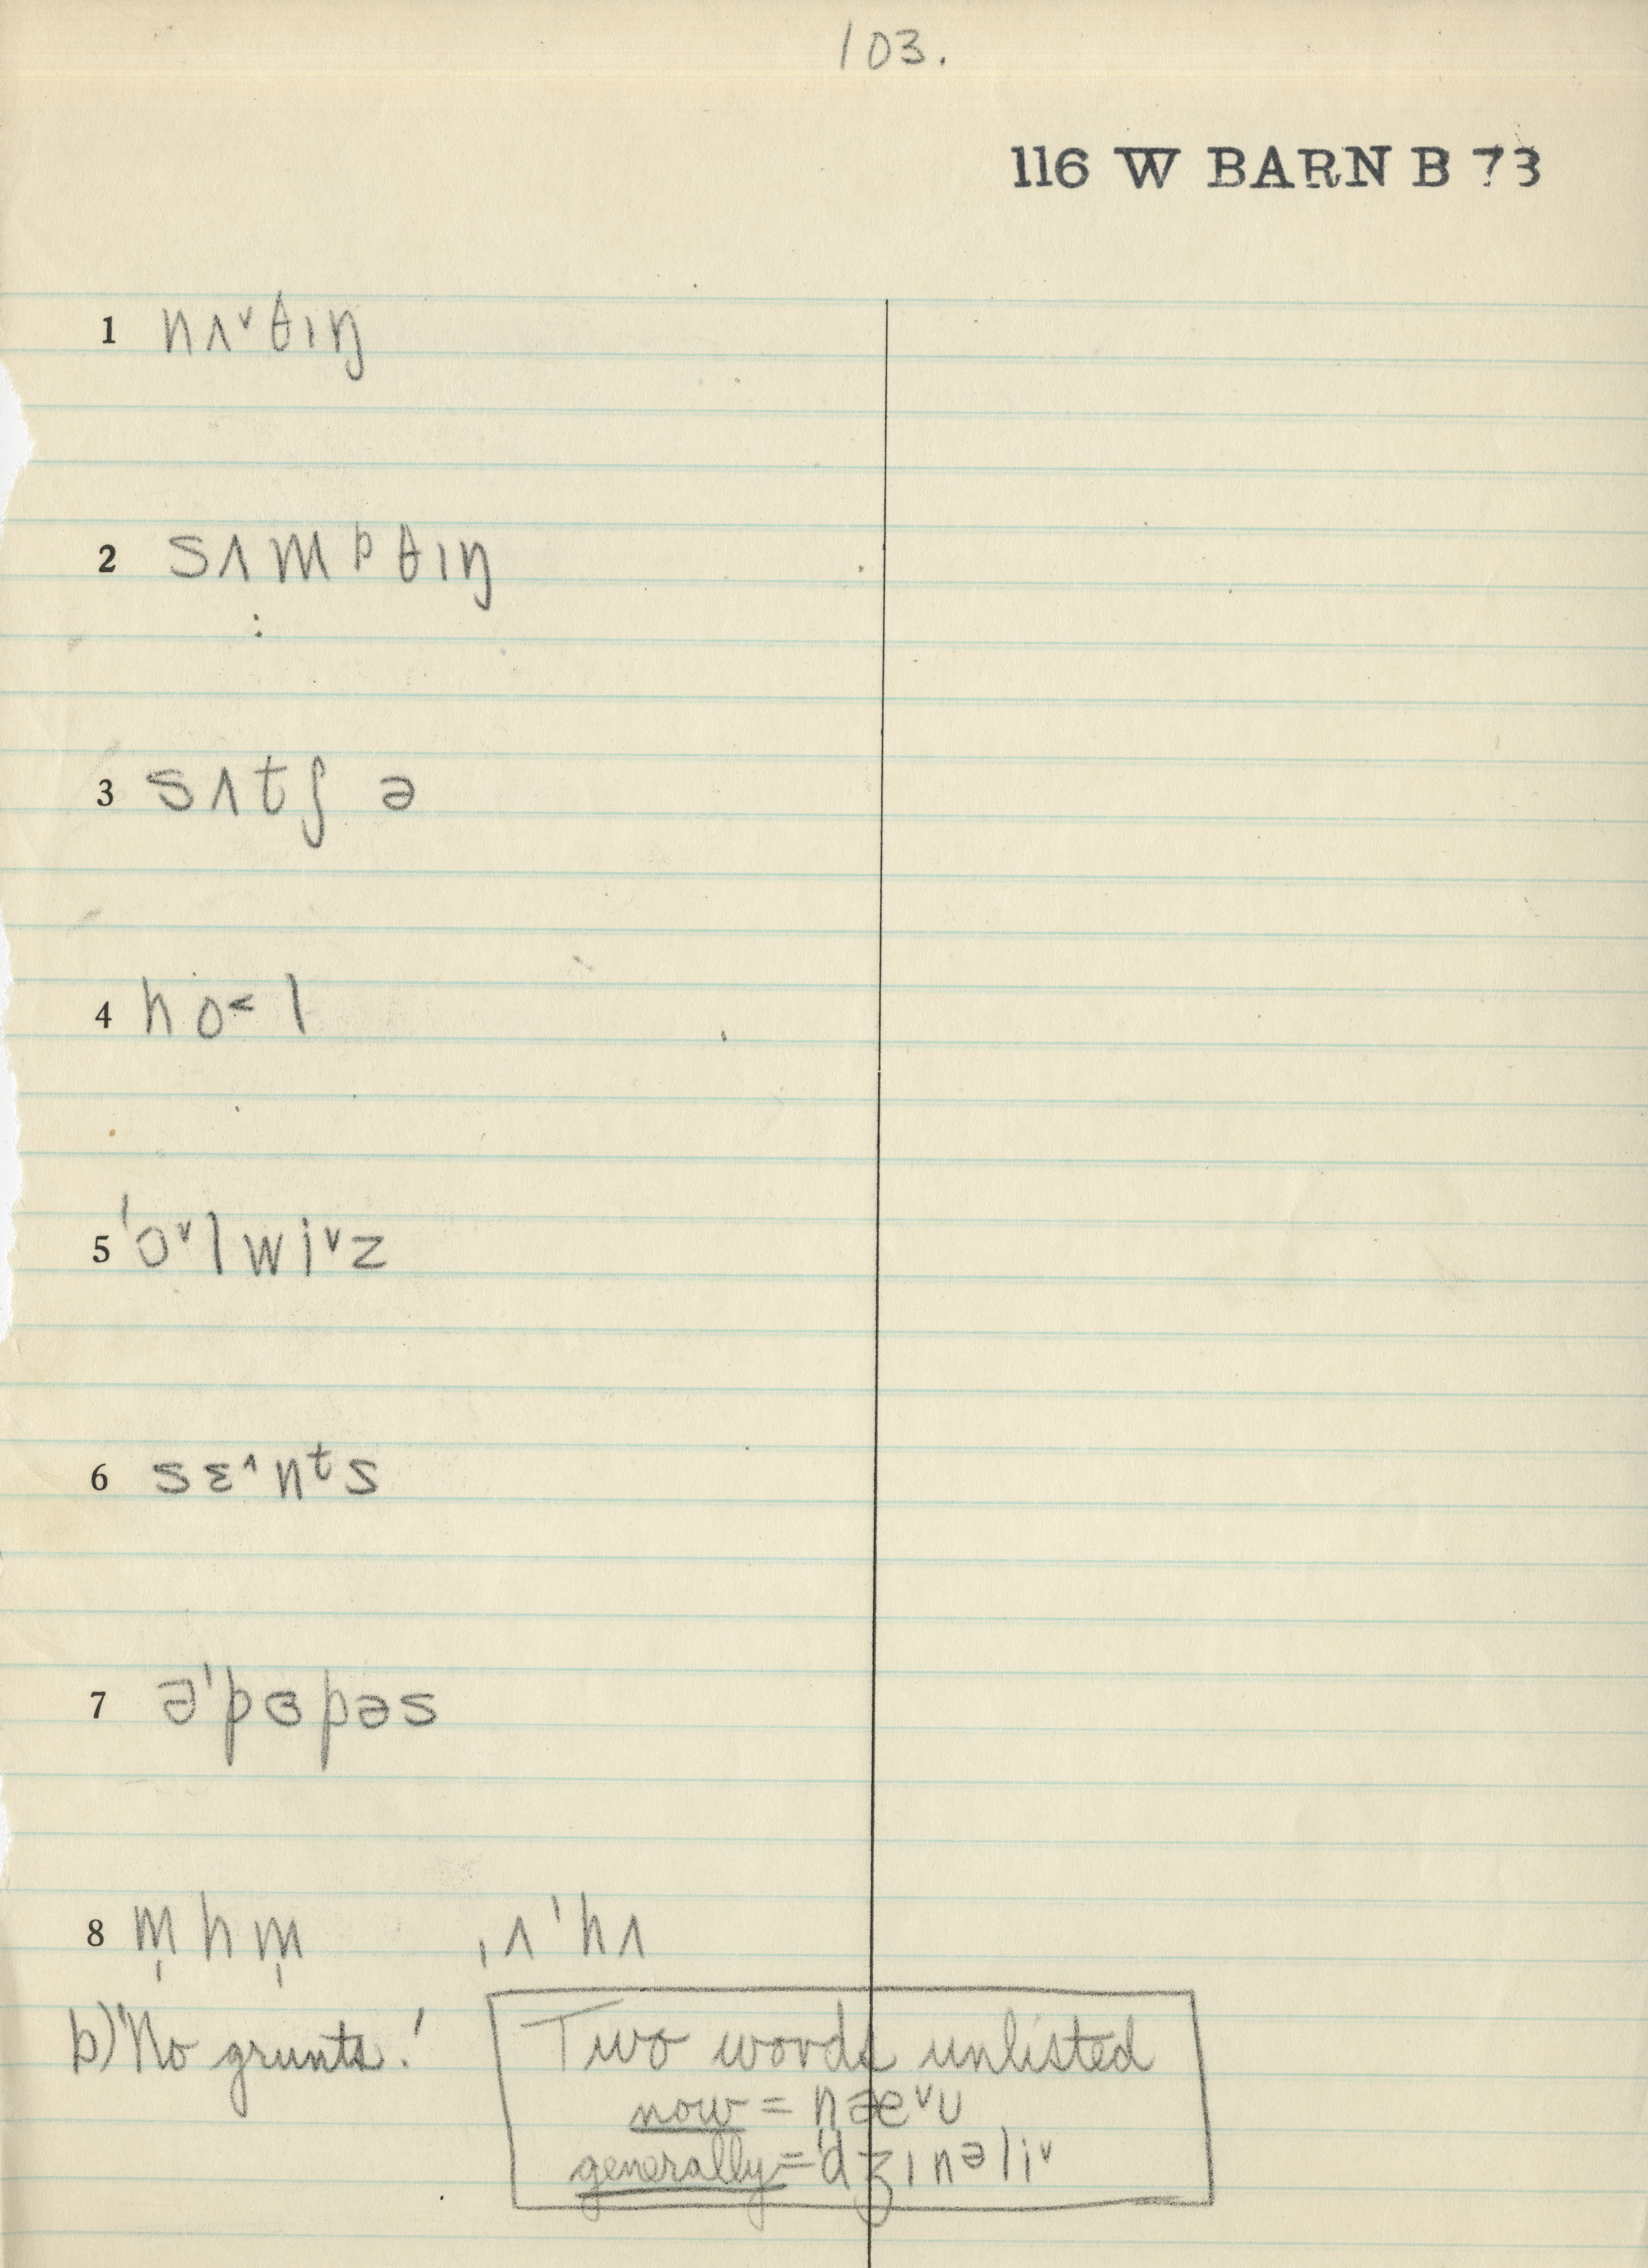 103.
116 W BARN B 73
1 nʌ˅θɪŋ
2 sʌmᵖθɪŋ
:
3 sʌtʃ ə
4 ho˂l
5 'ɔ˅lwi˅z
6 sɛ˄nᵗs
7 ə'pɜpəs
8 m̩hm̩ ˌʌ'hʌ
b) "No grunts."
Two words unlisted
now = næ˅ʊ
generally = 'dʒɪnəli˅